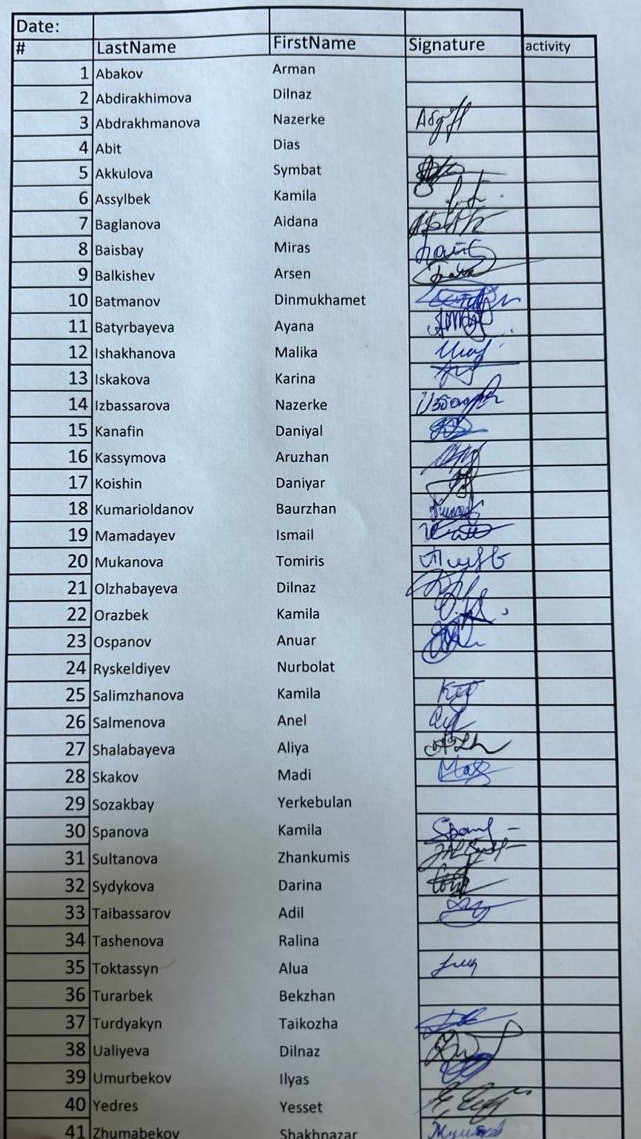 Date:
# LastName FirstName Signature activity
1 Abakov Arman
2 Abdirakhimova Dilnaz
3 Abdrakhmanova Nazerke
4 Abit Dias
5 Akkulova Symbat
6 Assylbek Kamila
7 Baglanova Aidana
8 Baisbay Miras
9 Balkishev Arsen
10 Batmanov Dinmukhamet
11 Batyrbayeva Ayana
12 Ishakhanova Malika
13 Iskakova Karina
14 Izbassarova Nazerke
15 Kanafin Daniyal
16 Kassymova Aruzhan
17 Koishin Daniyar
18 Kumarioldanov Baurzhan
19 Mamadayev Ismail
20 Mukanova Tomiris
21 Olzhabayeva Dilnaz
22 Orazbek Kamila
23 Ospanov Anuar
24 Ryskeldiyev Nurbolat
25 Salimzhanova Kamila
26 Salmenova Anel
27 Shalabayeva Aliya
28 Skakov Madi
29 Sozakbay Yerkebulan
30 Spanova Kamila
31 Sultanova Zhankumis
32 Sydykova Darina
33 Taibassarov Adil
34 Tashenova Ralina
35 Toktassyn Alua
36 Turarbek Bekzhan
37 Turdyakyn Taikozha
38 Ualiyeva Dilnaz
39 Umurbekov Ilyas
40 Yedres Yesset
41 Zhumabekov Shakhnazar